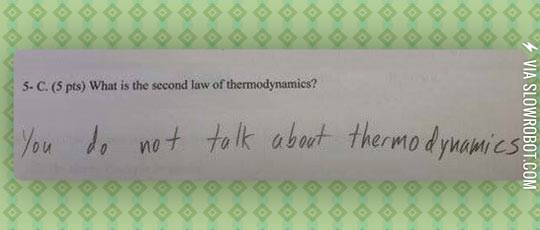 5- C. (5 pts) What is the second law of thermodynamics?
You do not talk about thermodynamics
VIA SLOWROBOT.COM